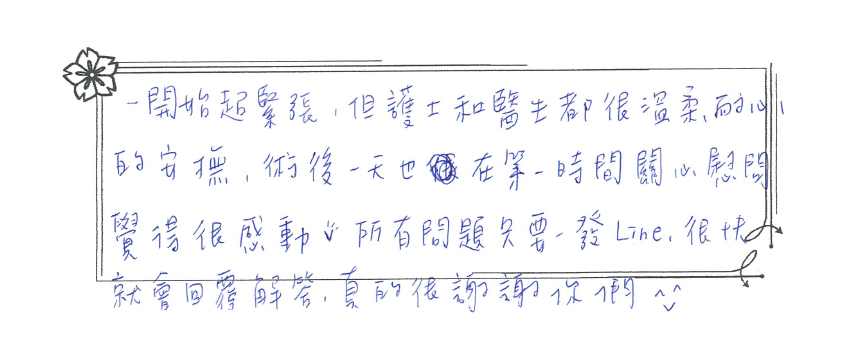 一開始起緊張,但護士和醫生都很溫柔,耐心
的安撫,術後一天也在第一時間關心慰問
覺得很感動 所有問題只要一發Line,很快
就會回覆解答,真的很謝謝你們 ^_^